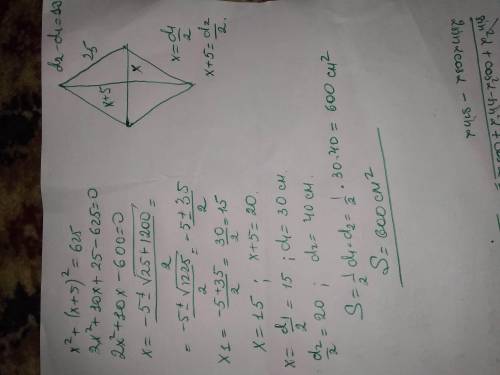 d2 - d1 = 10
25
x+5
x
x = d1/2
x+5 = d2/2.
x² + (x+5)² = 625
2x² + 10x + 25 - 625 = 0
2x² + 10x - 600 = 0
x = -5 ± √25+1200 / 2 =
= -5 ± √1225 / 2 = -5 ± 35 / 2
x1 = -5+35 / 2 = 30/2 = 15
x = 15 ; x+5 = 20.
x = d1/2 = 15 ; d1 = 30 см.
d2/2 = 20 ; d2 = 40 см.
S = 1/2 d1 · d2 = 1/2 · 30 · 40 = 600 см²
S = 600 см²